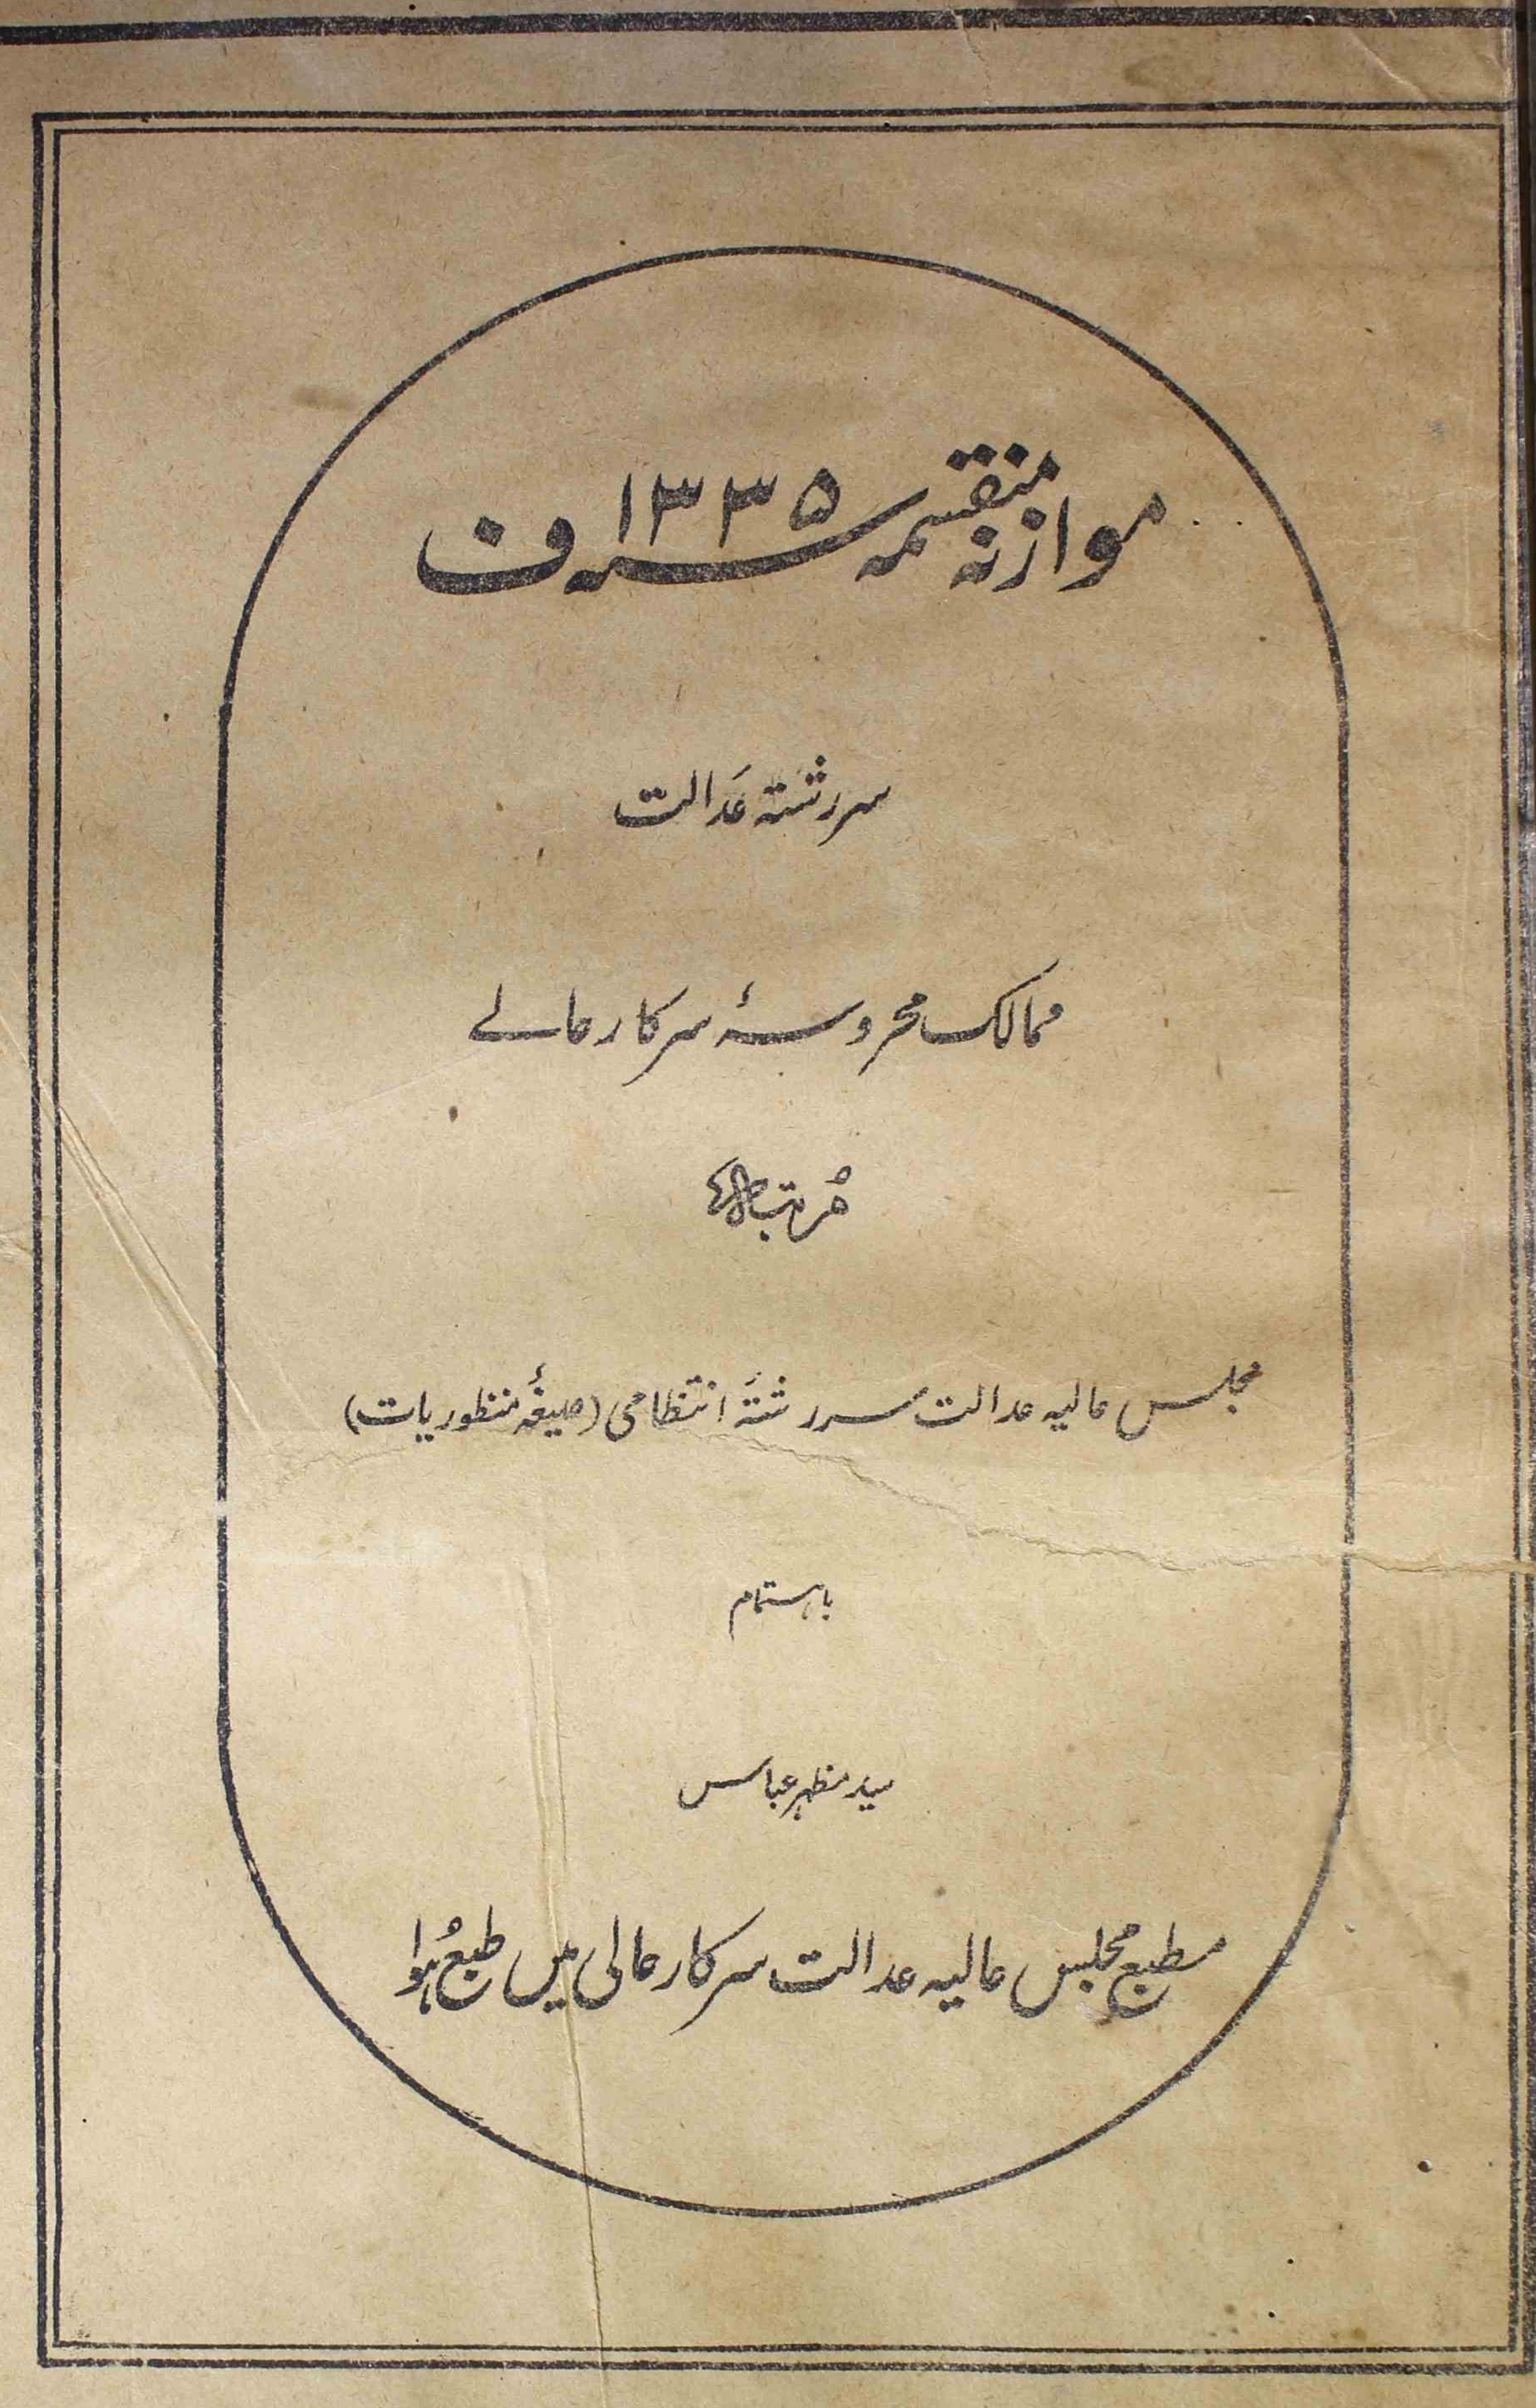 موازنہ منقسمہ سنہ ۱۳۳۵ ف
سررشتہ عدالت
ممالک محروسۂ سرکار عالے
مرتبہ
مجلس عالیہ عدالت سررشتۂ انتظامی (صیغۂ منظوریات)
باہتمام
سید مظہر عباس
مطبع مجلس عالیہ عدالت سرکار عالی میں طبع ہوا